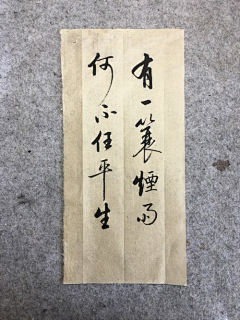 有一蓑煙雨
何不任平生